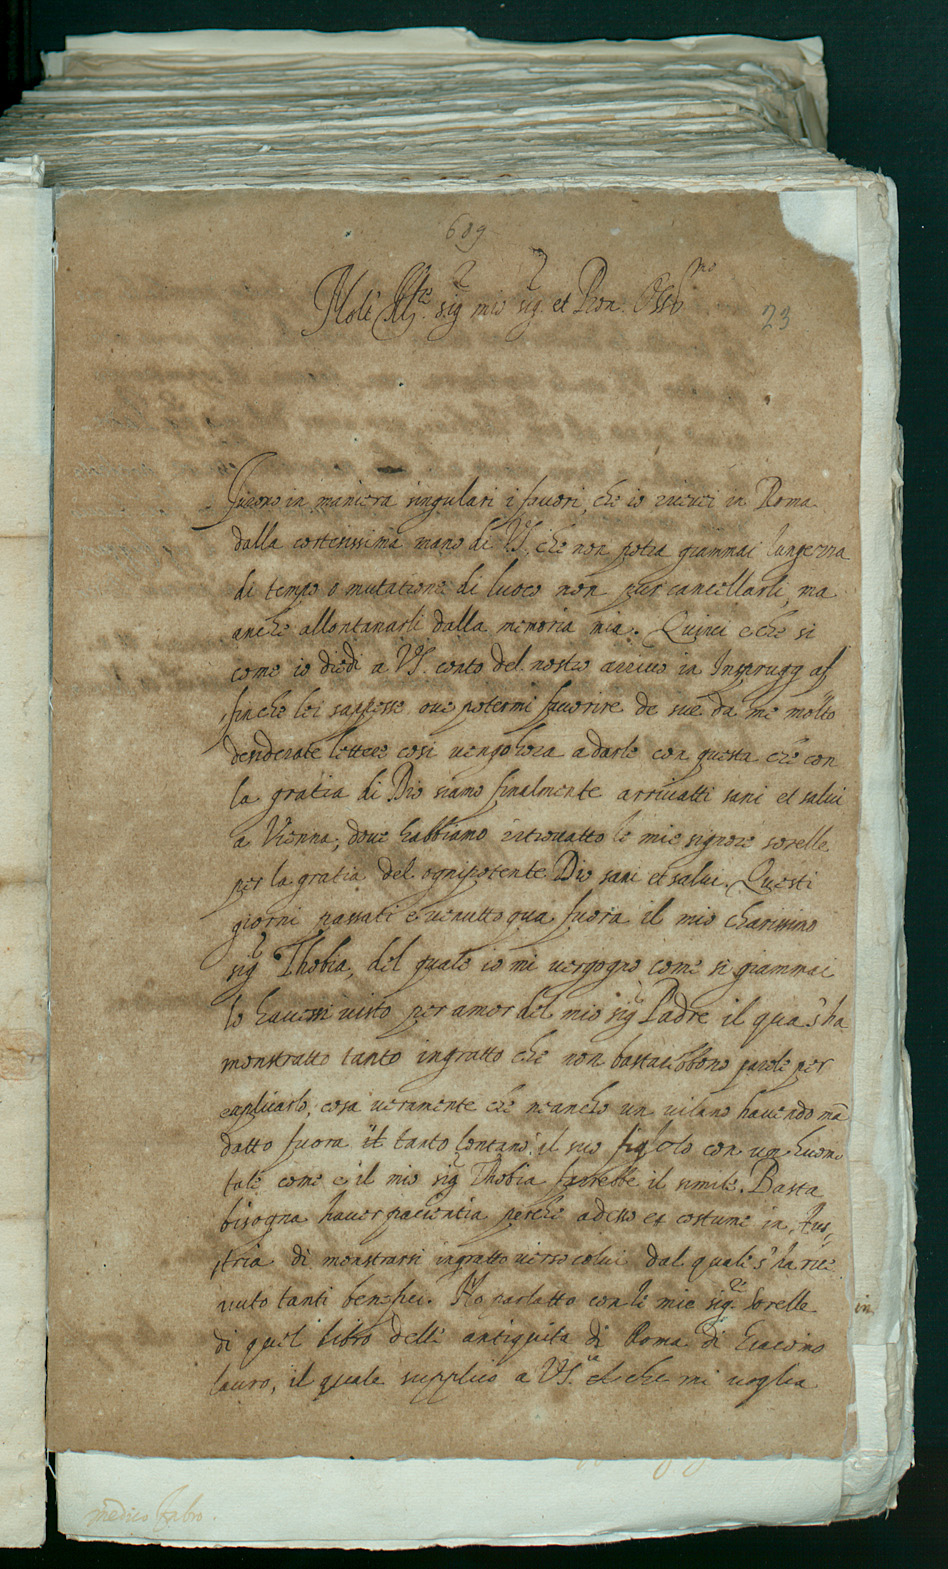 689
Molt' Ill.re sig.r mio sig.r et Pron. Oss.mo
23
furono in maniera singulari i favori, che io riceuei in Roma
dalla cortesissima mano di VS. che non potra giammai lungezza
di tempo o mutatione di luoco non pur cancellarli, ma
anche allontanarli dalla memoria mia. Quinci e che si
come io diedi a VS. conto del nostro arriuo in Insprugg af
finche lei sappesse oue potermi fauorire de sue da me molto
desiderate lettere cosi uengo hora a darle con questa che con
la gratia di Dio siamo finalmente arriuatti sani et salui
a Vienna, doue habbiamo ritrouatto le mie signore sorelle
per la gratia del ognipotente Dio sani et salui. Questi
giorni passati e uenutto qua fuora il mio charissimo
sig.r Thobia, del quale io mi uergogno come si giammai
lo hauessi uisto per amor del mio sig.r Padre il qua s'ha
monstratto tanto ingratto che non bastarebbono parole per
explicarlo, cosa ueramente che neancho un uilano hauendo mā
datto fuora tanto lontano il suo figlolo con un huomo
tale come e il mio sig.r Thobia farrebbe il simile. Basta
bisogna hauer pacientia perche adesso e costume in Aus,
stria di monstrarsi ingratto uerso colui dal quale s'ha rice
uuto tanti benefici. Ho parlatto con li mie sig.re Sorelle
in
di quel libro delli antiquita di Roma di Giacomo
lauro, il quale supplico a VS. che mi uoglia
medico fabro.